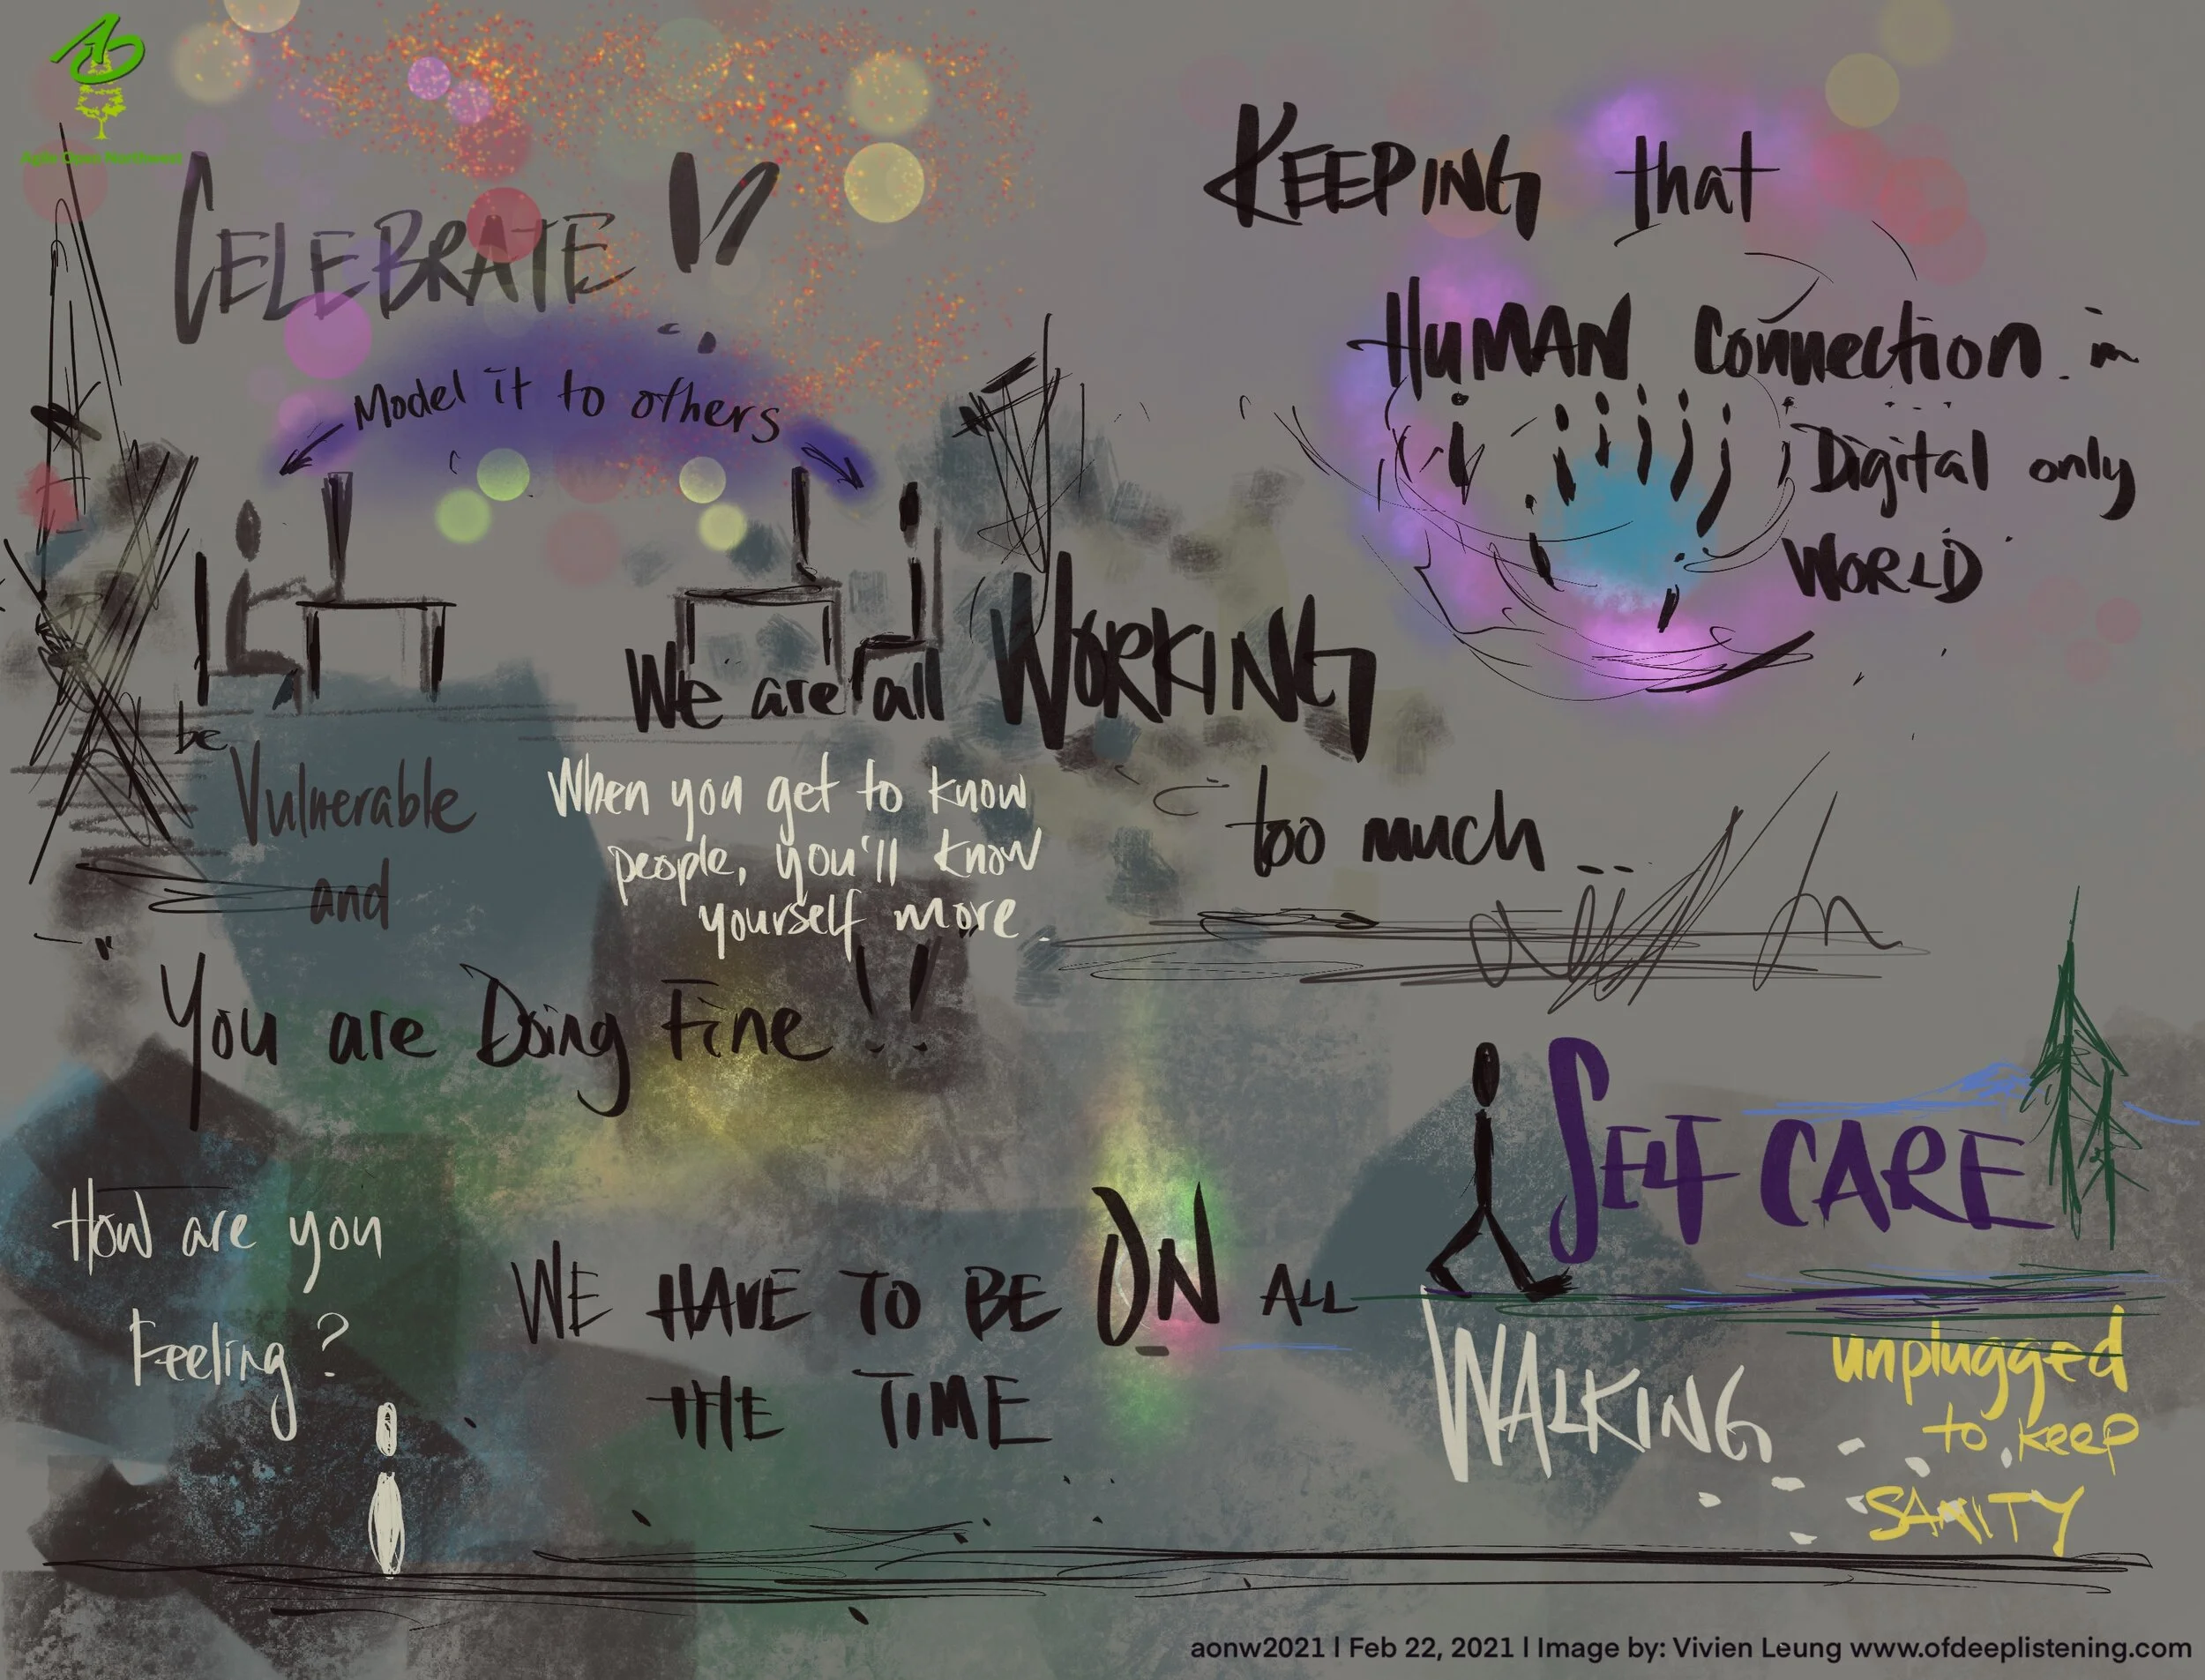 Agile Open Northwest
CELEBRATE !!
Model it to others
KEEPING that
HUMAN Connection in
Digital only
WORLD
We are all WORKING
too much ...
be
Vulnerable
and
When you get to know
people, you'll know
yourself more.
"You are Doing Fine!!"
SELF CARE
How are you
Feeling?
WE HAVE TO BE ON ALL
THE TIME
WALKING
unplugged
to keep
SANITY
aonw2021 | Feb 22, 2021 | Image by: Vivien Leung www.ofdeeplistening.com